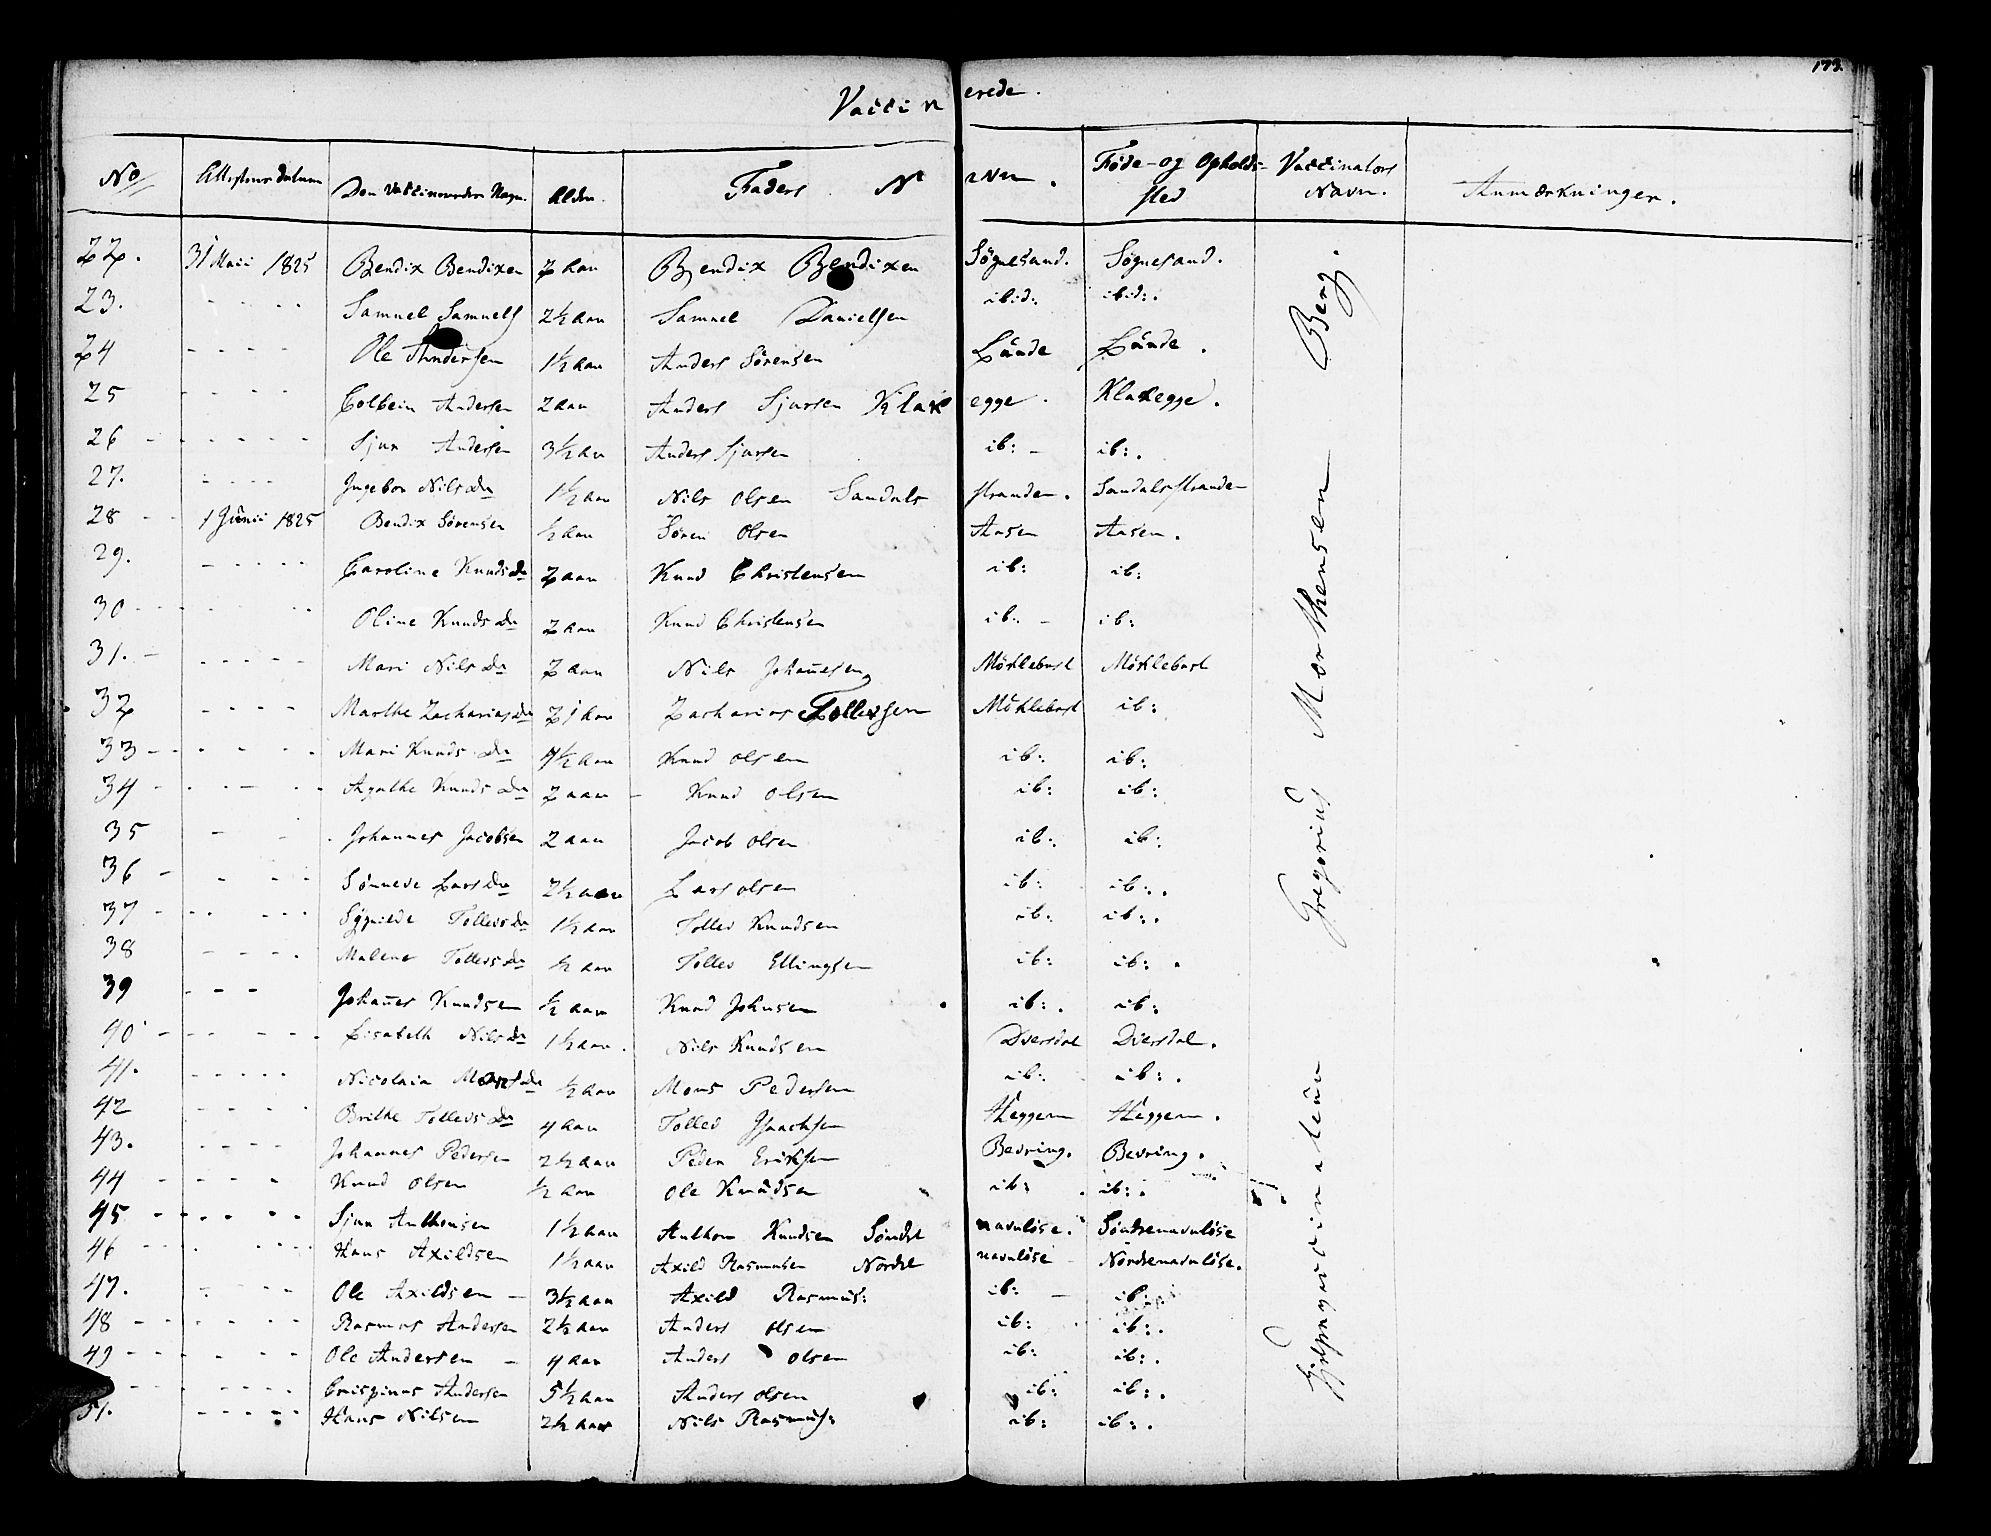 173.
Vaccinerede.
No Attestens datum Den Vaccineredes Navn. Alder. Faders Navn. Føde- og Opholds-sted Vaccinators Navn. Anmærkninger.
22. 31 Maii 1825 Bendix Bendixen 2 aar Bendix Bendixen Søgnesand. Søgnesand.
23. - - - - Samuel Samuels 2½ aar Samuel Danielsen ibid: ibid:.
24 - - - - Ole Andersen 1½ aar Anders Sörensen Lunde Lunde.
25 - - - - Colbein Andersen 2 aar Anders Sjursen Klakegge. Klakegge.
26 - - - - - - Sjur Andersen 3½ aar Anders Sjursen ib: - ib:.
27. - - - - Ingebor Nilsdr 1½ aar Nils Olsen Sandalsstranden. Sandalsstranden
28 - - 1 Junii 1825 Bendix Sörensen ½ aar Sören Olsen Aasen Aasen.
29. - - - - - Caroline Knudsdr 2 aar Knud Christensen ib: ib:
30 - - - - - Oline Knudsdr 2 aar Knud Christensen ib: - ib:
31. - - - - - - Mari Nilsdr 2 aar Nils Johanesen Möklebust Möklebust
32 - - - - Marthe Zachariasdr 2½ aar Zacharias Tollefsen Möklebust ib:
33 - - - - - - Mari Knudsdr 4½ aar Knud Olsen ib: ib:
34 - - - - - - Agathe Knudsdr 2 aar - Knud Olsen ib: ib:
35 - - - Johannes Jacobsen 2 aar Jacob Olsen ib: ib:
36 - - - - Sönneve Larsdr 2½ aar Lars Olsen ib: ib:.
37 - - - - - - Sygnilde Tollevsdr 1½ aar Tollev Knudsen ib: ib:.
38 - - - - Malene Tollevsdr ½ aar Tollev Ellingsen ib: ib: .
39 - - - Johanes Knudsen ½ aar Knud Johnsen ib:. ib:
40 - - - - - - Lisabeth Nilsdr 1½ aar. Nils Knudsen Dversdal Dversdal.
41. - - - - - Nicolaia Monsdr ½ aar Mons Pedersen ib: ib:.
42 - - - - Brithe Tollevsdr 4 aar Tollev Isaachsen Heggem Heggem.
43. - - - - Johannes Pedersen 2½ aar Peder Eriksen Bevring. Bevring.
44 - - - - - Knud Olsen ½ aar Ole Knudsen ib: ib:.
45 - - - - - - Sjur Anthonsen 1½ aar Anthon Knudsen Söndrenavnlöse. Söndrenavnlöse
46 - - - - - - Hans Axildsen 1½ aar Axild Rasmusen Nordrenavnlöse - Nordrenavnlöse.
47. - - - Ole Axildsen - 3½ aar Axild Rasmus: ib: - ib:
48 - - - - - - Rasmus Andersen 2½ aar Anders Olsen ib: ib:.
49 - - - - - - Ole Andersen - 4 aar Anders Olsen ib: ib:.
- - - - - - Crispinus Andersen 5½ aar Anders Olsen ib: ib:.
51. - - - - - Hans Nilsen 2½ aar Nils Rasmus: ib: ib:.
Hjelpevaccinateur Gregorius Morthensen Berg.